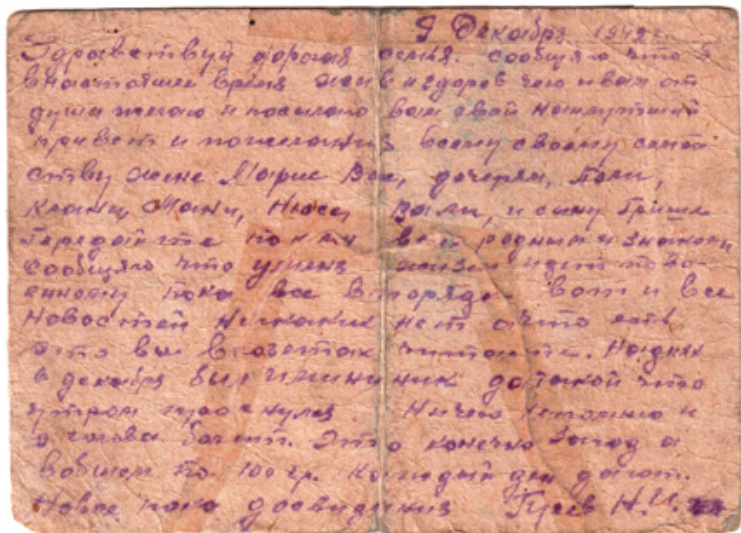 9 Декабря 1942 г.
Здравствуй дорогая семья. сообщяю что я
внастоящее время жив и здоров чего и вам от
души желаю и посылаю вам свой наилутший
привет и пожелания всему своему семей
ству жене Марие Вас, дочерям, Поли,
Клани, Мани, Нюси, Вали, и сыну Грише
Передайте поклон всем родным и знакомым
сообщяю что уменя жизнь идет пово
енному пока все впорядке Вот и все
Новостей никаких нет а что есть
это вы вгазетах читаете. Наднях
6 декабря был именинник да такой что
утром проснулся Ничего непомню и
голова болит. Это конечно Заход а
вобшем по 100 гр. каждый ден дают.
Новое пока досвидания Гусев Н.И.